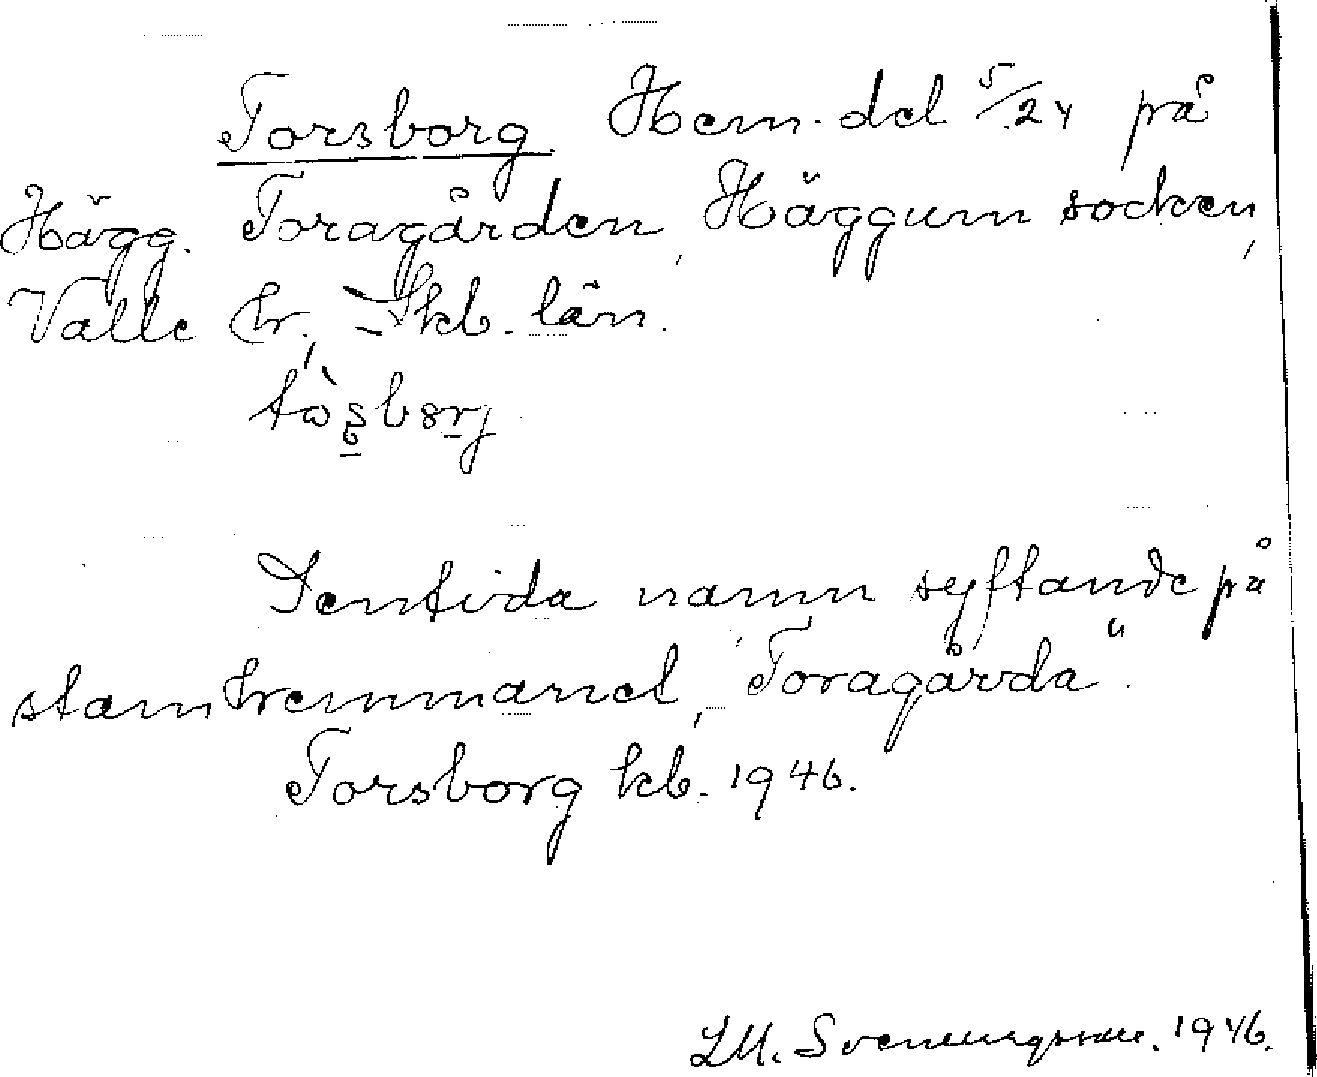 Torsborg. Hem. del 5/24 på
Hägg. Toragården, Häggum socken,
Valle hr., Skb. län.
Sentida namn syftande på
stamhemmanet, "Toragårda".
Torsborg kb. 1946.
Svenungsson. 1946.